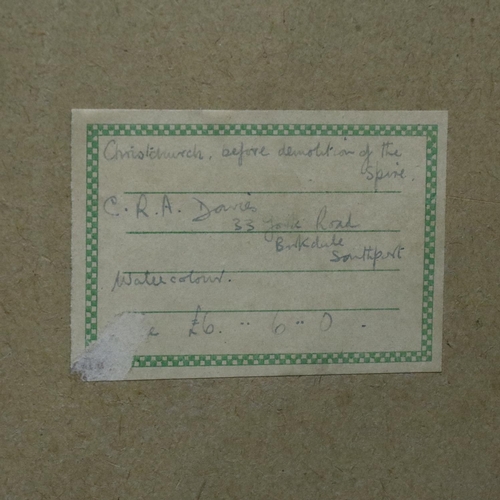 Christchurch, before demolition of the
Spire.
C. R. A. Davies
33 Road
Birkdale
Southport
Watercolour.
£6 .. 6 .. 0 .